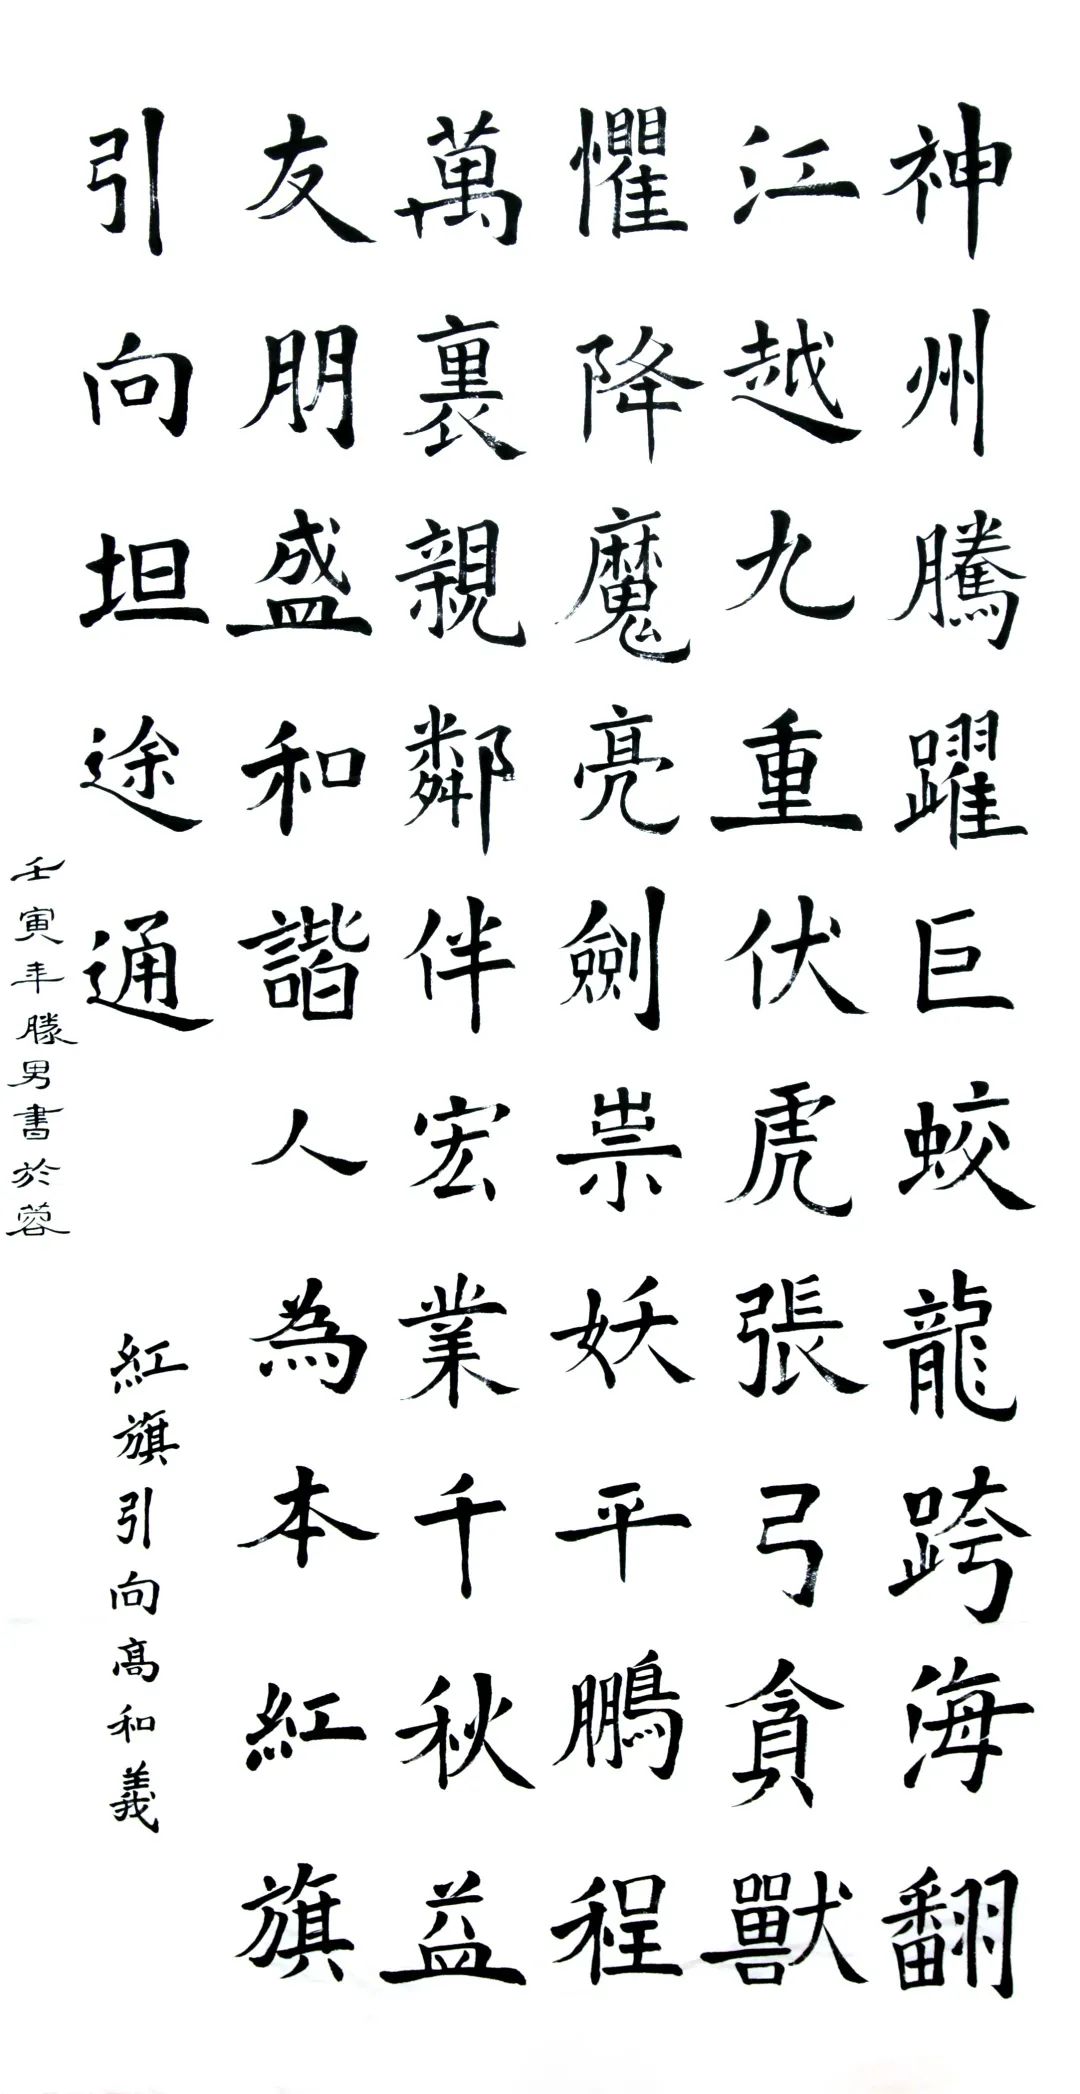 神州騰躍巨蛟龍跨海翻
江越九重伏虎張弓貪獸
懼降魔亮劍祟妖平鵬程
萬裏親鄰伴宏業千秋益
友朋盛和諧人為本紅旗
引向坦途通
紅旗引向高和義
壬寅年滕男書於蓉